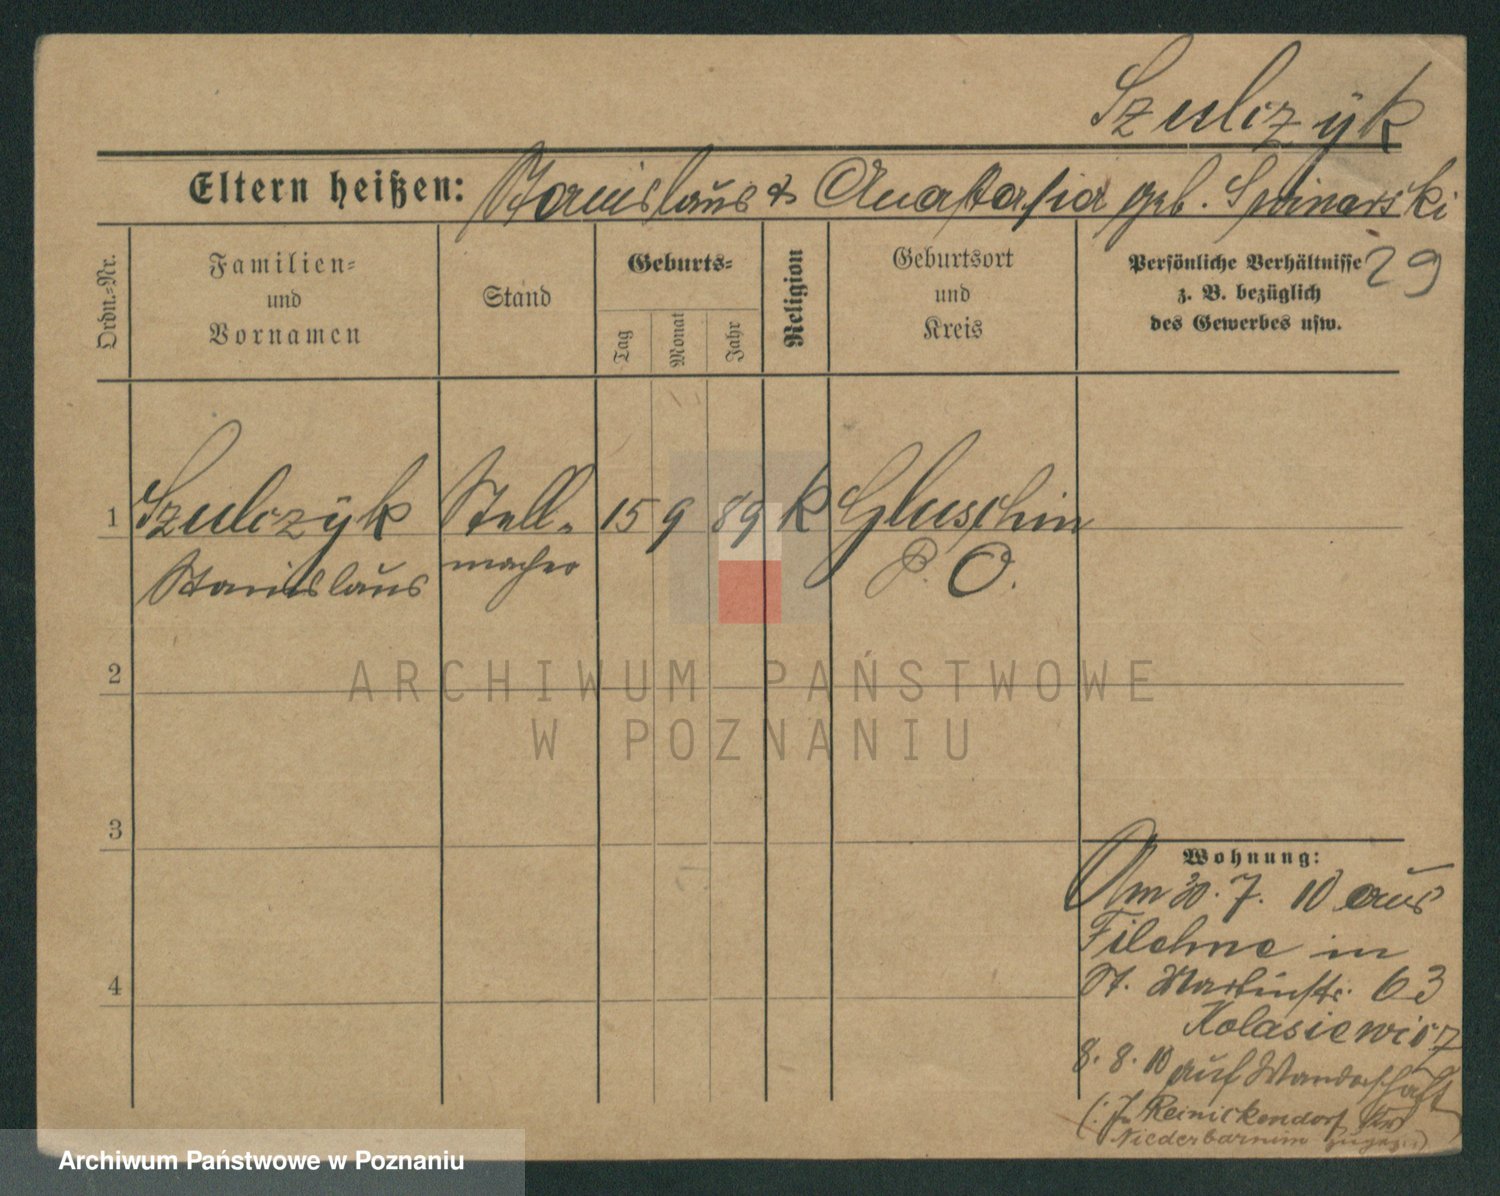 Szulczÿk
Eltern heißen: Stanislaus & Anastasia geb. Spinarski
29
Ordn.-Nr.
Familien- und Vornamen
Stand
Geburts-
Tag
Monat
Jahr
Religion
Geburtsort und Kreis
Persönliche Verhältnisse z. B. bezüglich des Gewerbes usw.
1 Szulczÿk Stell- 15 9 89 k Gluschin
Stanislaus macher P. O.
2
3
4
Wohnung:
Am 30. 7. 10 aus
Filehne in
St. Martinstr. 63
Kolasiewicz
8. 8. 10 auf Wanderschaft
(: In Reinickendorf Krs
Niederbarnim
ARCHIWUM PAŃSTWOWE
W POZNANIU
Archiwum Państwowe w Poznaniu